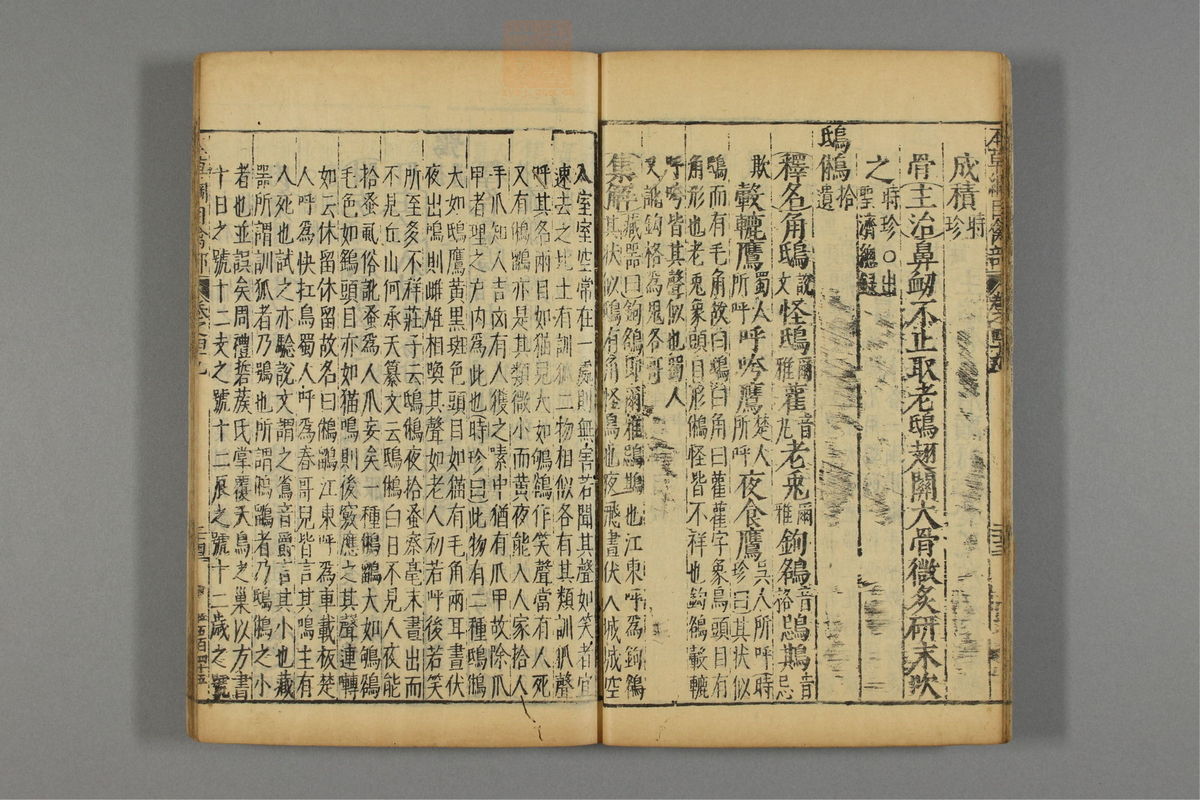 成積時珍
骨主治鼻衂不止取老鴟翅關大骨微炙研末吹
之時珍○出聖濟總録
鴟鵂拾遺
釋名角鴟說文怪鴟爾雅雚音丸老兎爾雅鉤鵅音格鵋鶀音忌
欺轂轆鷹蜀人所呼呼咵鷹楚人所呼夜食鷹吳人所呼時珍曰其狀似
鴟而有毛角故曰鴟曰角曰雚雚字象鳥頭目有
角形也老兎象頭目形鵂怪皆不祥也鉤鵅轂轆
呼咵皆其聲似也蜀人
又訛鉤格為鬼各哥
集解藏器曰鉤鵅即爾雅鵋鶀也江東呼為鉤鵅
其狀似鴟有角怪鳥也夜飛晝伏入城城空
入室室空常在一處則無害若聞其聲如笑者宜
速去之北土有訓狐二物相似各有其類訓狐聲
呼其名兩目如猫兒大如鴝鵒作笑聲當有人死
又有鵂鶹亦是其類微小而黃夜能入人家拾人
手爪知人吉凶有人獲之嗉中猶有爪甲故除爪
甲者埋之户内為此也時珍曰此物有二種鴟鵂
大如鴟鷹黃黑斑色頭目如猫有毛角兩耳晝伏
夜出鳴則雌雄相喚其聲如老人初若呼後若笑
所至多不祥莊子云鴟鵂夜拾蚤察毫末晝出而
不見丘山何承天纂文云鴟鵂白日不見人夜能
拾蚤虱俗訛蚤為人爪妄矣一種鵂鶹大如鴝鵒
毛色如鷂頭目亦如猫鳴則後竅應之其聲連囀
如云休留休留故名曰鵂鶹江東呼為車載板楚
人呼為快扛鳥蜀人呼為春哥兒皆言其鳴主有
人死也試之亦驗說文謂之鴟音爵言其小也藏
器所謂訓狐者乃鴞也所謂鵂鶹者乃鴟鵂之小
者也並誤矣周禮硩蔟氏掌覆夭鳥之巢以方書
十日之號十二支之號十二辰之號十二歲之號